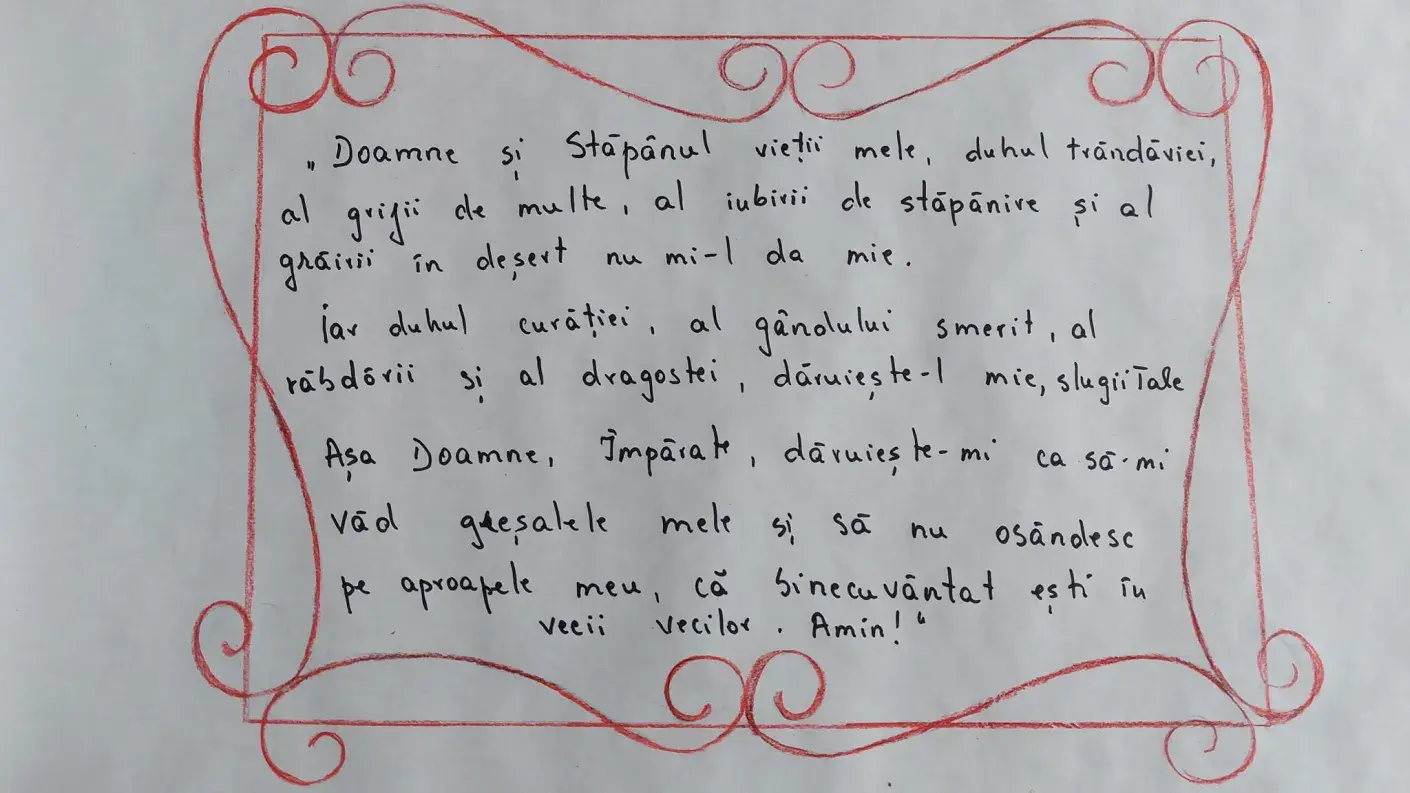 „Doamne și Stăpânul vieții mele, duhul trândăviei,
al grijii de multe, al iubirii de stăpânire și al
grăirii în deșert nu mi-l da mie.
Iar duhul curăției, al gândului smerit, al
răbdării și al dragostei, dăruiește-l mie, slugii Tale
Așa Doamne, Împărate, dăruiește-mi ca să-mi
văd greșalele mele și să nu osândesc
pe aproapele meu, că binecuvântat ești în
vecii vecilor. Amin!“